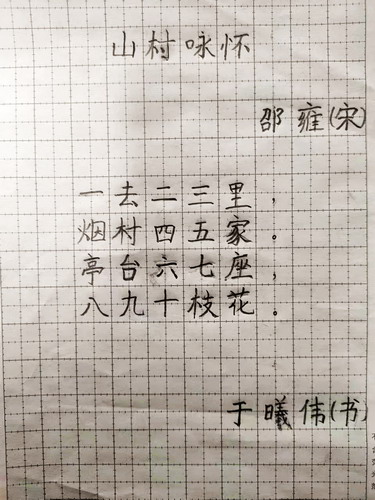 山村咏怀
邵雍(宋)
一去二三里，
烟村四五家。
亭台六七座，
八九十枝花。
于曦伟(书)